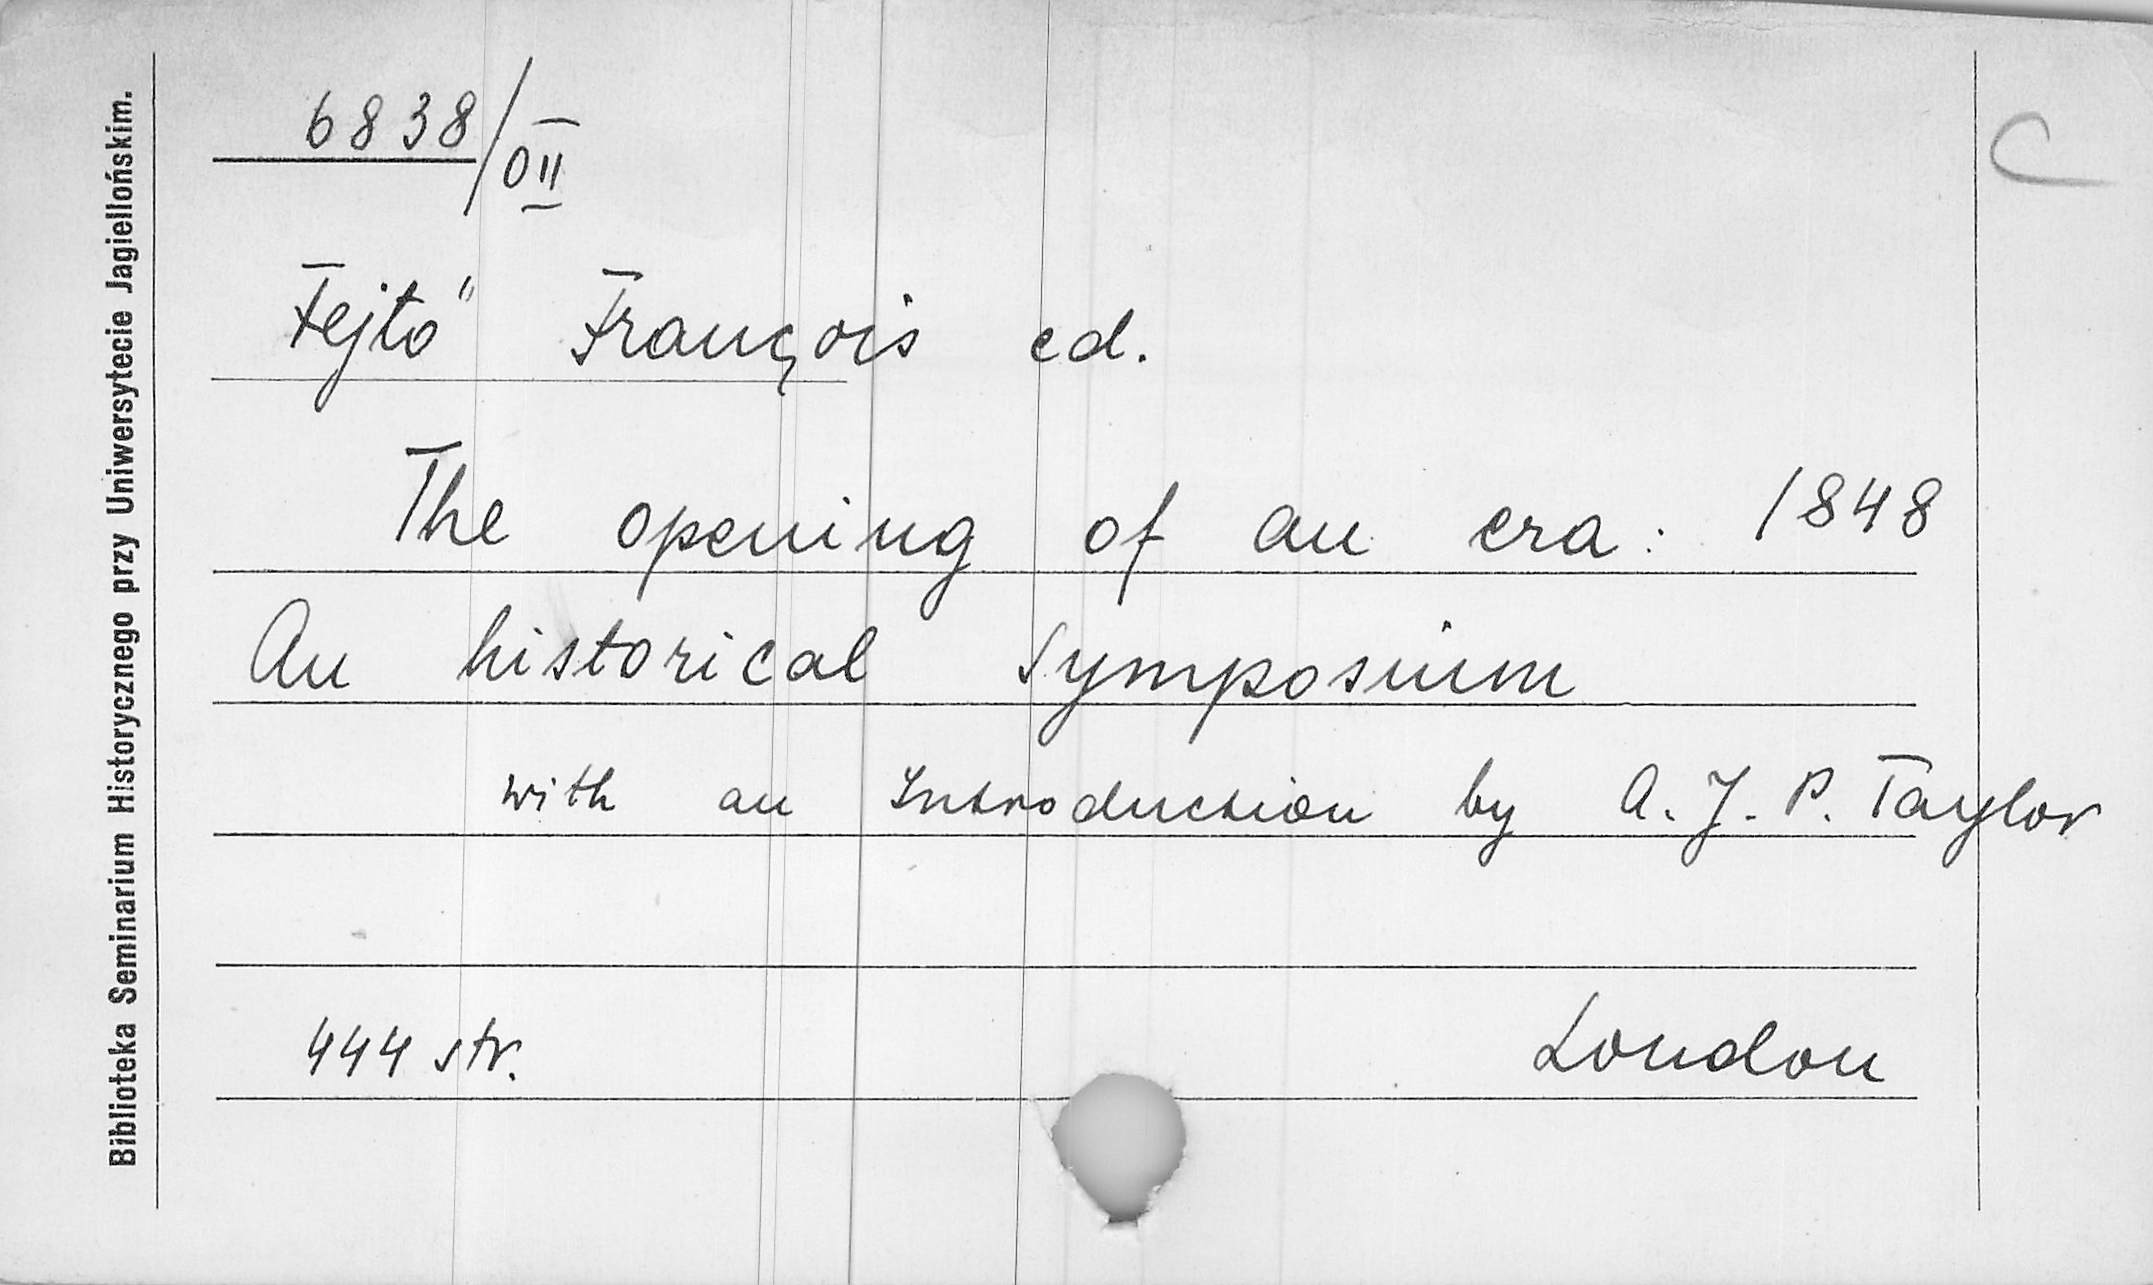 6838/OII
C
Fejtő François ed.
The opening of an era: 1848
An historical Symposium
with an Introduction by A. J. P. Taylor
444 str. London
Biblioteka Seminarium Historycznego przy Uniwersytecie Jagiellońskim.